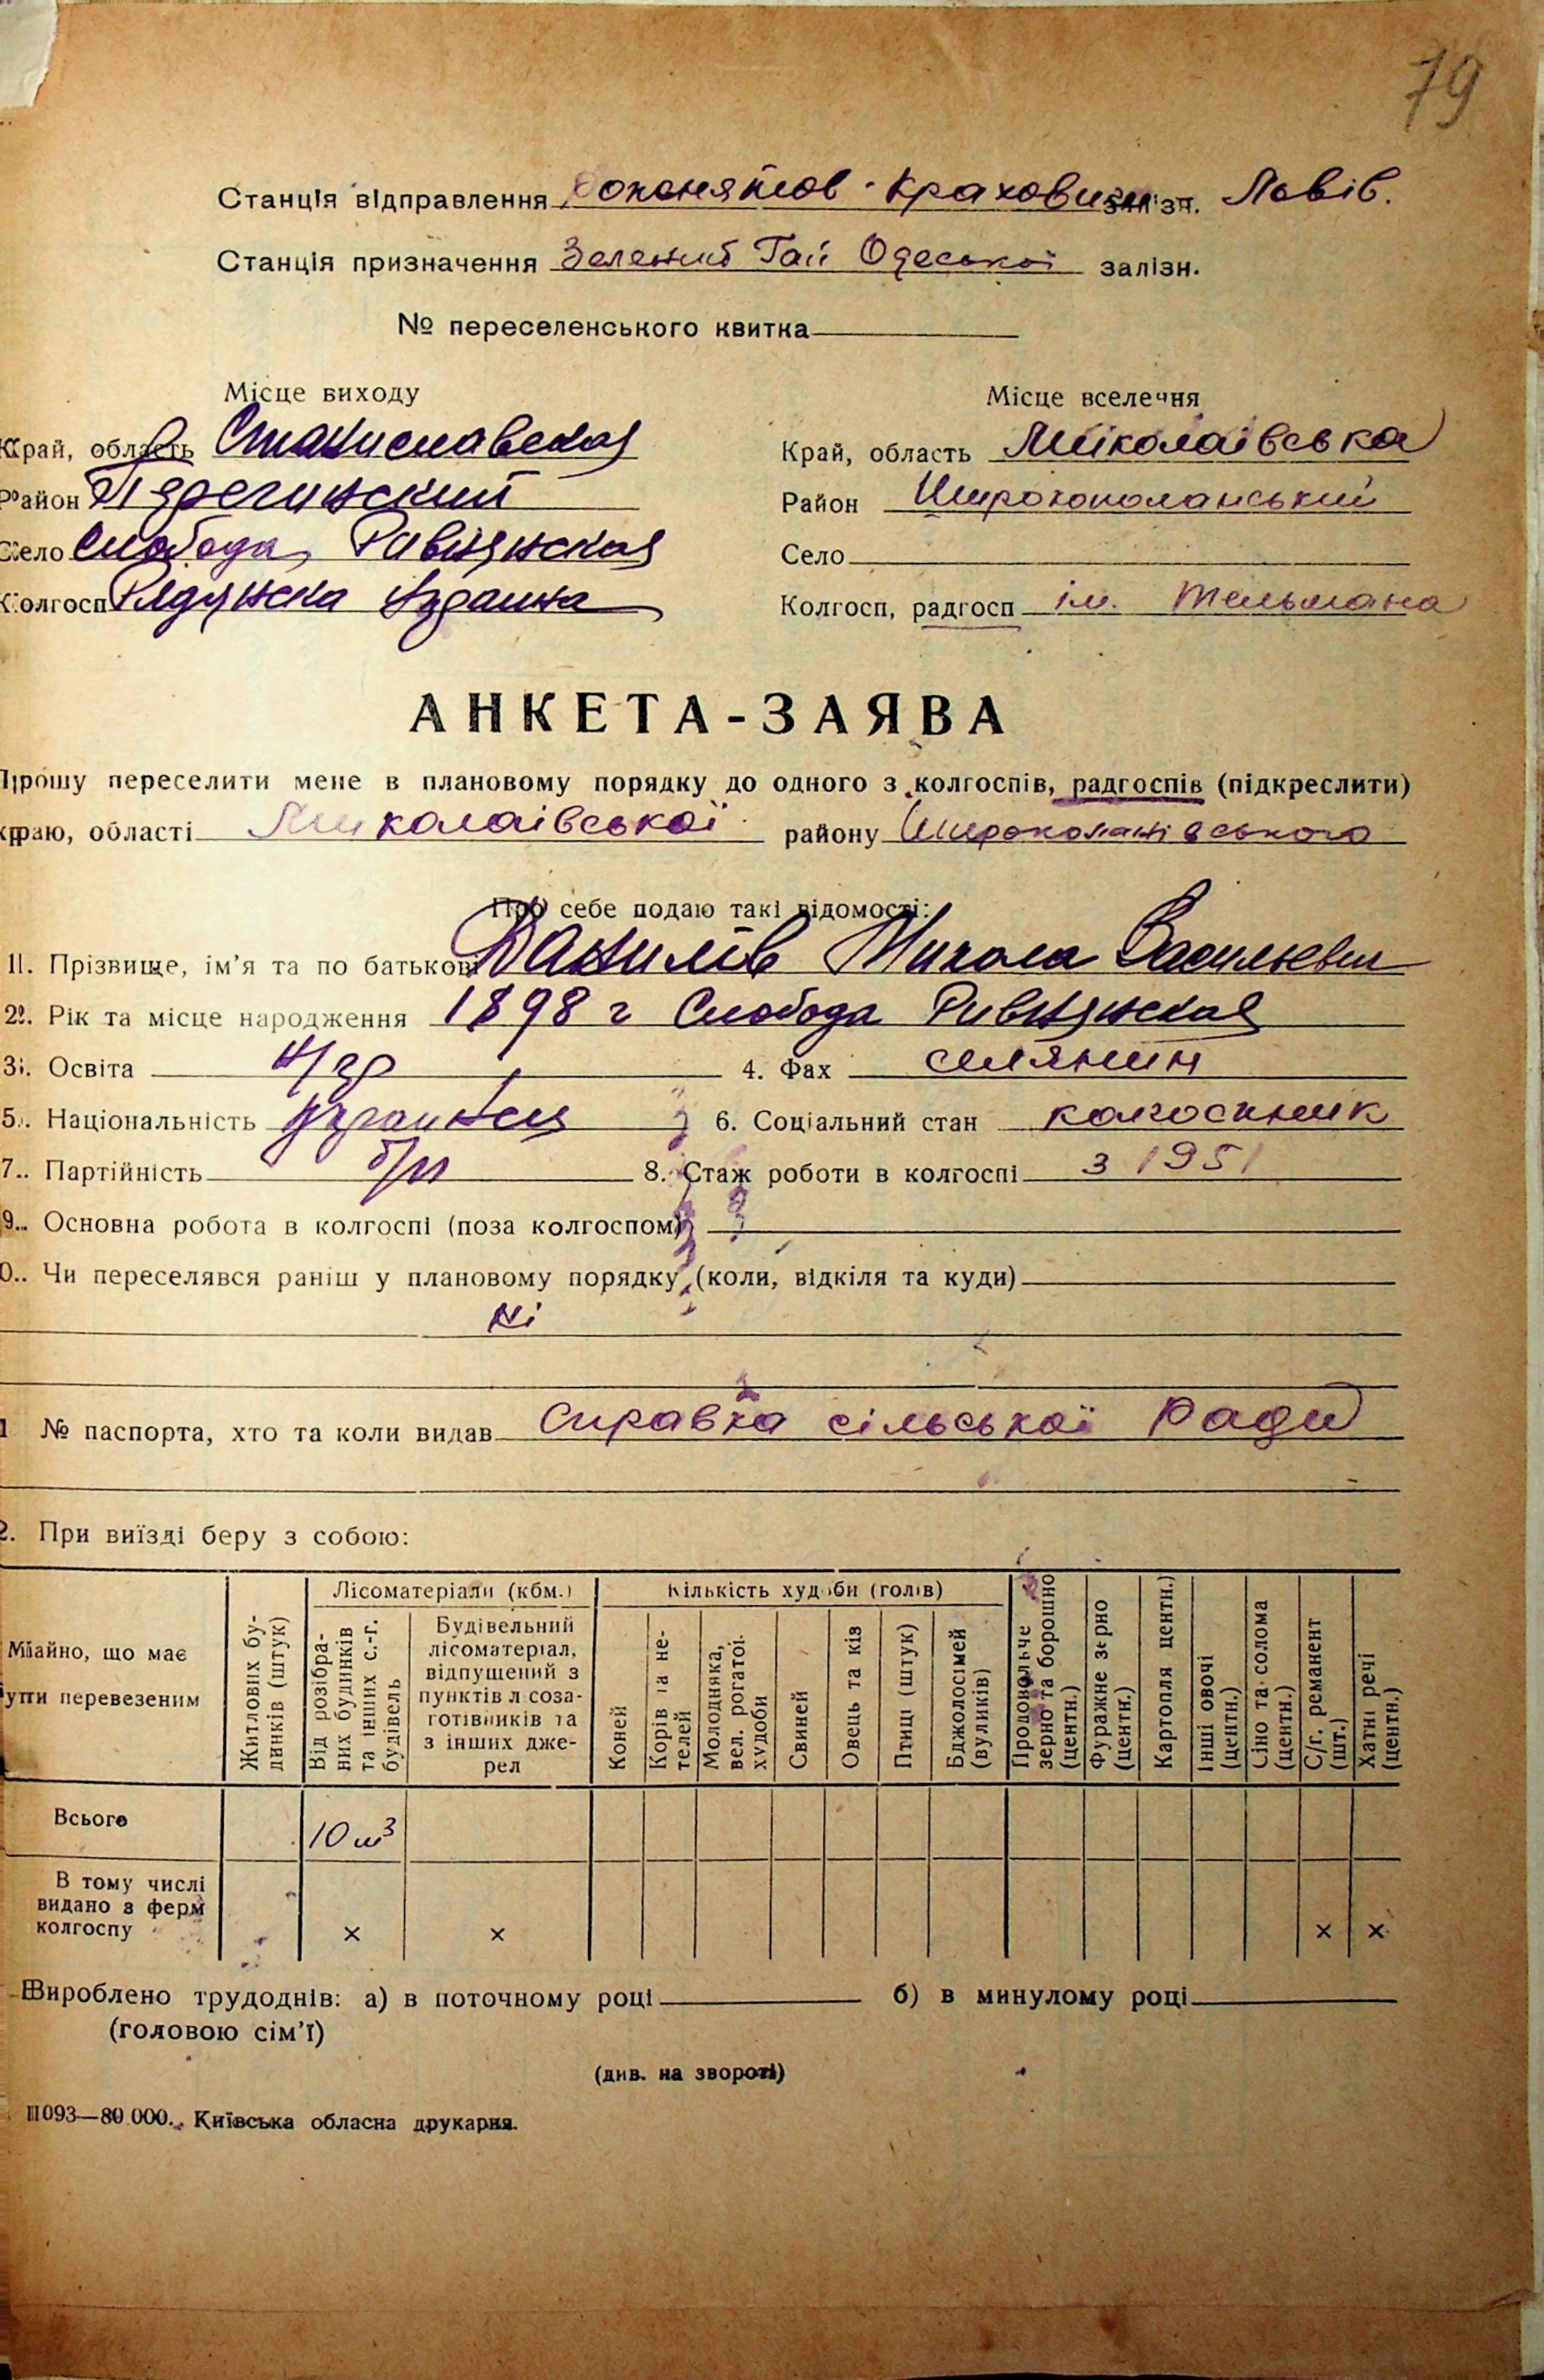 79
Станція відправлення Рожнятов-Креховичі залізн. Львів.
Станція призначення Зелений Гай Одеської залізн.
№ переселенського квитка
Місце виходу
Місце вселення
Край, область Станиславская
Край, область Миколаївська
Район Перегинский
Район Широколанський
Село Слобода Ривнянская
Село
Колгосп Радянська Украина
Колгосп, радгосп ім. Тельмана
АНКЕТА-ЗАЯВА
Прошу переселити мене в плановому порядку до одного з колгоспів, радгоспів (підкреслити)
краю, області Миколаївської району Широколанівського
Про себе подаю такі відомості:
1. Прізвище, ім'я та по батькові Данилів Микола Васильевич
2. Рік та місце народження 1898 г Слобода Ривнянская
3. Освіта н/гр 4. Фах селянин
5. Національність українец 6. Соціальний стан колгоспник
7. Партійність б/п 8. Стаж роботи в колгоспі з 1951
9. Основна робота в колгоспі (поза колгоспом)
0. Чи переселявся раніш у плановому порядку (коли, відкіля та куди)
ні
1 № паспорта, хто та коли видав справка сільської Ради
2. При виїзді беру з собою:
Майно, що має бути перевезеним
Житлових будинків (штук)
Лісоматеріали (кбм.)
Від розібраних будинків та інших с.-г. будівель
Будівельний лісоматеріал, відпущений з пунктів лісозаготівників та з інших джерел
Кількість худоби (голів)
Коней
Корів та нетелей
Молодняка, вел. рогатої худоби
Свиней
Овець та кіз
Птиці (штук)
Бджолосімей (вуликів)
Продовольче зерно та борошно (центн.)
Фуражне зерно (центн.)
Картопля центн.)
Інші овочі (центн.)
Сіно та солома (центн.)
С/г. реманент (шт.)
Хатні речі (центн.)
Всього 10 м³
В тому числі видано з ферм колгоспу × × × ×
Вироблено трудоднів: а) в поточному році б) в минулому році
(головою сім'ї)
(див. на звороті)
1093—80.000. Київська обласна друкарня.